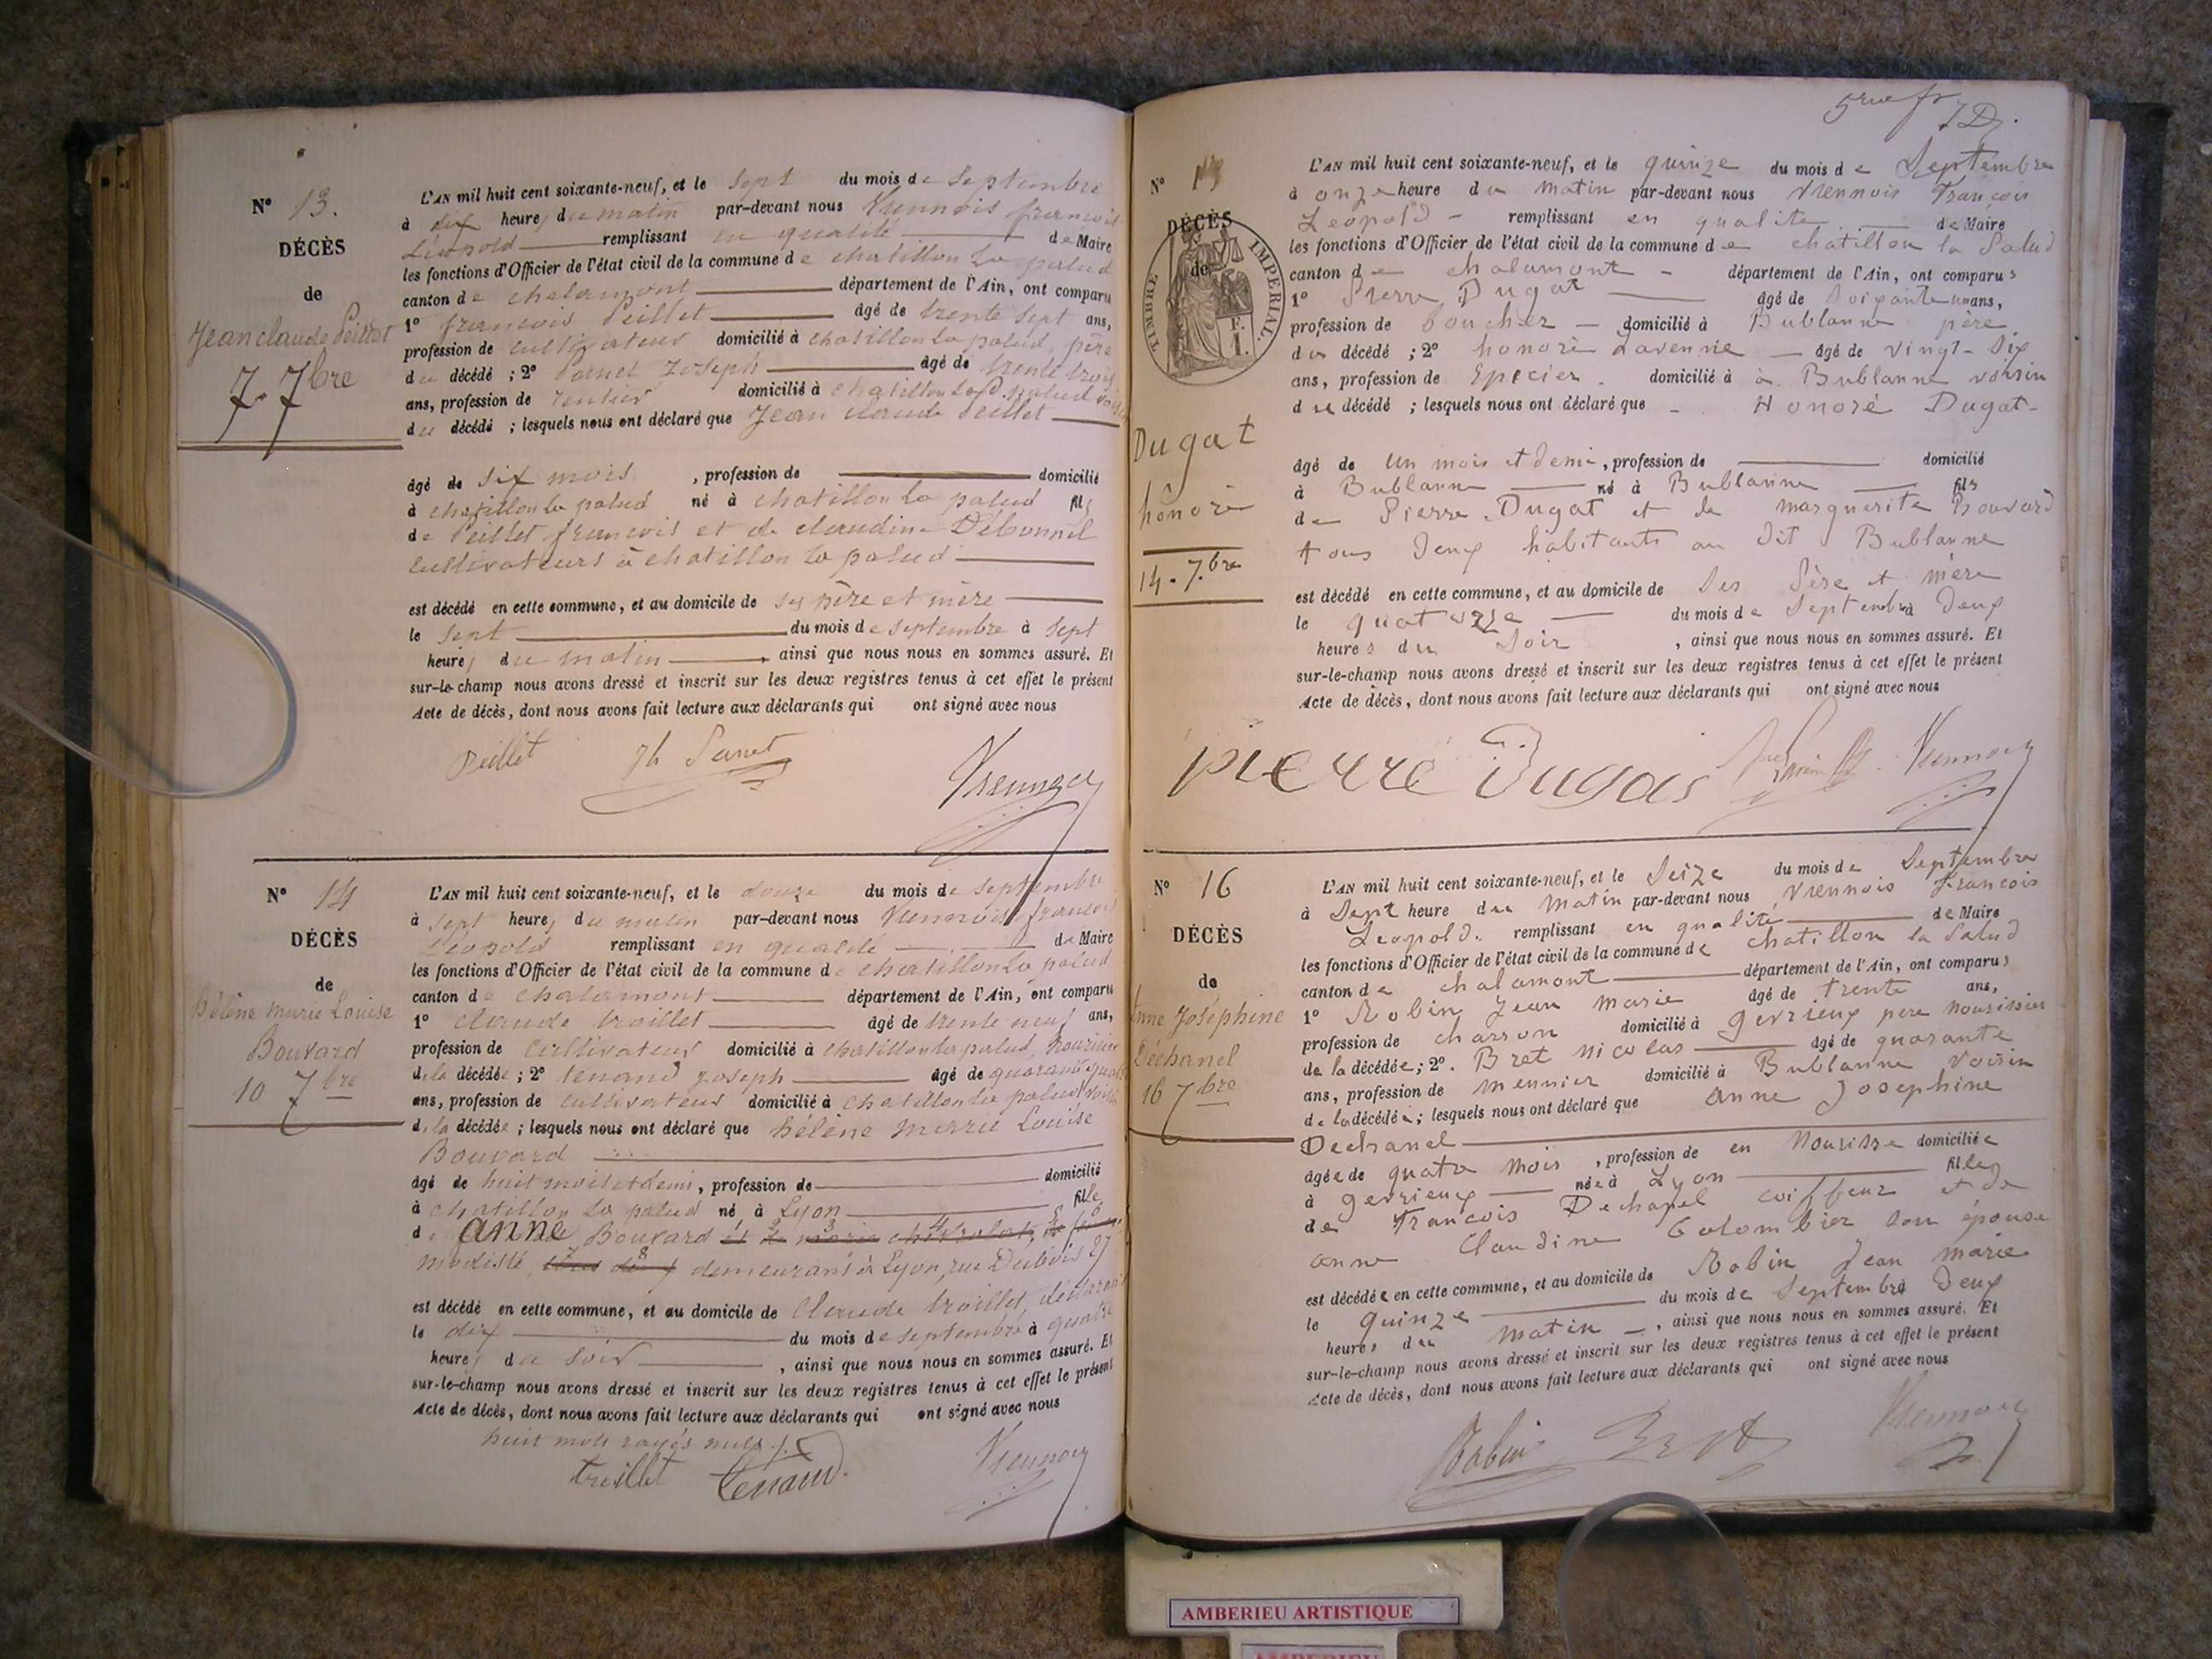 N° 13.
DÉCÈS
de
Jean claude Peillet
7. 7bre
L'AN mil huit cent soixante-neuf, et le sept du mois de Septembre
à dix heures du matin par-devant nous Viennois françois
Léopold remplissant en qualité de Maire
les fonctions d'Officier de l'état civil de la commune de chatillon la palud
canton de chalamont département de l'Ain, ont comparu
1° françois Peillet âgé de trente sept ans,
profession de cultivateur domicilié à chatillon la palud, père
du décédé ; 2° Joseph âgé de trente trois
ans, profession de rentier domicilié à chatillon la palud
du décédé ; lesquels nous ont déclaré que Jean claude Peillet
âgé de six mois , profession de domicilié
à chatillon la palud né à chatillon la palud fils
de Peillet françois et de claudine Débonnel
cultivateurs à chatillon la palud
est décédé en cette commune, et au domicile de ses père et mère
le sept du mois de septembre à sept
heures du matin , ainsi que nous nous en sommes assuré. Et
sur-le-champ nous avons dressé et inscrit sur les deux registres tenus à cet effet le présent
Acte de décès, dont nous avons fait lecture aux déclarants qui ont signé avec nous
Peillet
N° 14
DÉCÈS
de
hélène marie Louise
Bouvard
10 7bre
L'AN mil huit cent soixante-neuf, et le douze du mois de septembre
à sept heures du matin par-devant nous Viennois françois
Léopold remplissant en qualité de Maire
les fonctions d'Officier de l'état civil de la commune de chatillon la palud
canton de chalamont département de l'Ain, ont comparu
1° claude troillet âgé de trente neuf ans,
profession de cultivateur domicilié à chatillon la palud, nourricier
de la décédée ; 2° tenand joseph âgé de quarante quatre
ans, profession de cultivateur domicilié à chatillon la palud voisin
de la décédée ; lesquels nous ont déclaré que hélène marie Louise
Bouvard
âgé de huit mois et demi, profession de domicilié
à chatillon la palud né à Lyon fille
de anne Bouvard et de marie
modiste, demeurant à Lyon, rue Dubois 27
est décédé en cette commune, et au domicile de Claude troillet, déclarant
le dix du mois de septembre à
heures du soir , ainsi que nous nous en sommes assuré. Et
sur-le-champ nous avons dressé et inscrit sur les deux registres tenus à cet effet le présent
Acte de décès, dont nous avons fait lecture aux déclarants qui ont signé avec nous
huit mots rayés nuls
troillet tenand.
5me fr
7 D.
N°
DÉCÈS
de
TIMBRE IMPERIAL.
F.
1.
Dugat
honoré
14. 7.bre
L'AN mil huit cent soixante-neuf, et le quinze du mois de Septembre
à onze heure du matin par-devant nous Viennois françois
Leopold - remplissant en qualite de Maire
les fonctions d'Officier de l'état civil de la commune de chatillon la Palud
canton de chalamont - département de l'Ain, ont comparus
1° Pierre Dugat âgé de Soixante un ans,
profession de boucher - domicilié à Bublanne père
du décédé ; 2° honoré Lavenne - âgé de vingt-six
ans, profession de Epicier. domicilié à à Bublanne voisin
du décédé ; lesquels nous ont déclaré que - Honoré Dugat-
âgé de Un mois et demi, profession de domicilié
à Bublanne né à Bublanne fils
de Pierre Dugat et de marguerite Bouvard
tous deux habitants au dit Bublanne
est décédé en cette commune, et au domicile de Ses Père et mère
le quatorze du mois de Septembre à Deux
heures du Soir , ainsi que nous nous en sommes assuré. Et
sur-le-champ nous avons dressé et inscrit sur les deux registres tenus à cet effet le présent
Acte de décès, dont nous avons fait lecture aux déclarants qui ont signé avec nous
pierre Dugas
N° 16
DÉCÈS
de
Anne Joséphine
Déchanel
16 7bre
L'AN mil huit cent soixante-neuf, et le Seize du mois de Septembre
à Sept heure du matin par-devant nous Viennois françois
Leopold. remplissant en qualité de Maire
les fonctions d'Officier de l'état civil de la commune de chatillon la Palud
canton de chalamont département de l'Ain, ont comparus
1° Robin Jean marie âgé de trente ans,
profession de charron domicilié à gevrieux pere nourissier
de la décédée ; 2°. Bret nicolas âgé de quarante
ans, profession de meunier domicilié à Bublanne Voisin
de la décédée ; lesquels nous ont déclaré que anne Josephine
Dechanel
âgée de quatre mois , profession de en Nourisse domiciliée
à gevrieux née à Lyon fille
de francois Dechanel coiffeur et de
anne Claudine Colombier son épouse
est décédée en cette commune, et au domicile de Robin Jean marie
le quinze du mois de Septembre à Deux
heures du matin - , ainsi que nous nous en sommes assuré. Et
sur-le-champ nous avons dressé et inscrit sur les deux registres tenus à cet effet le présent
Acte de décès, dont nous avons fait lecture aux déclarants qui ont signé avec nous
Robin Bret
AMBERIEU ARTISTIQUE
AMBERIEU